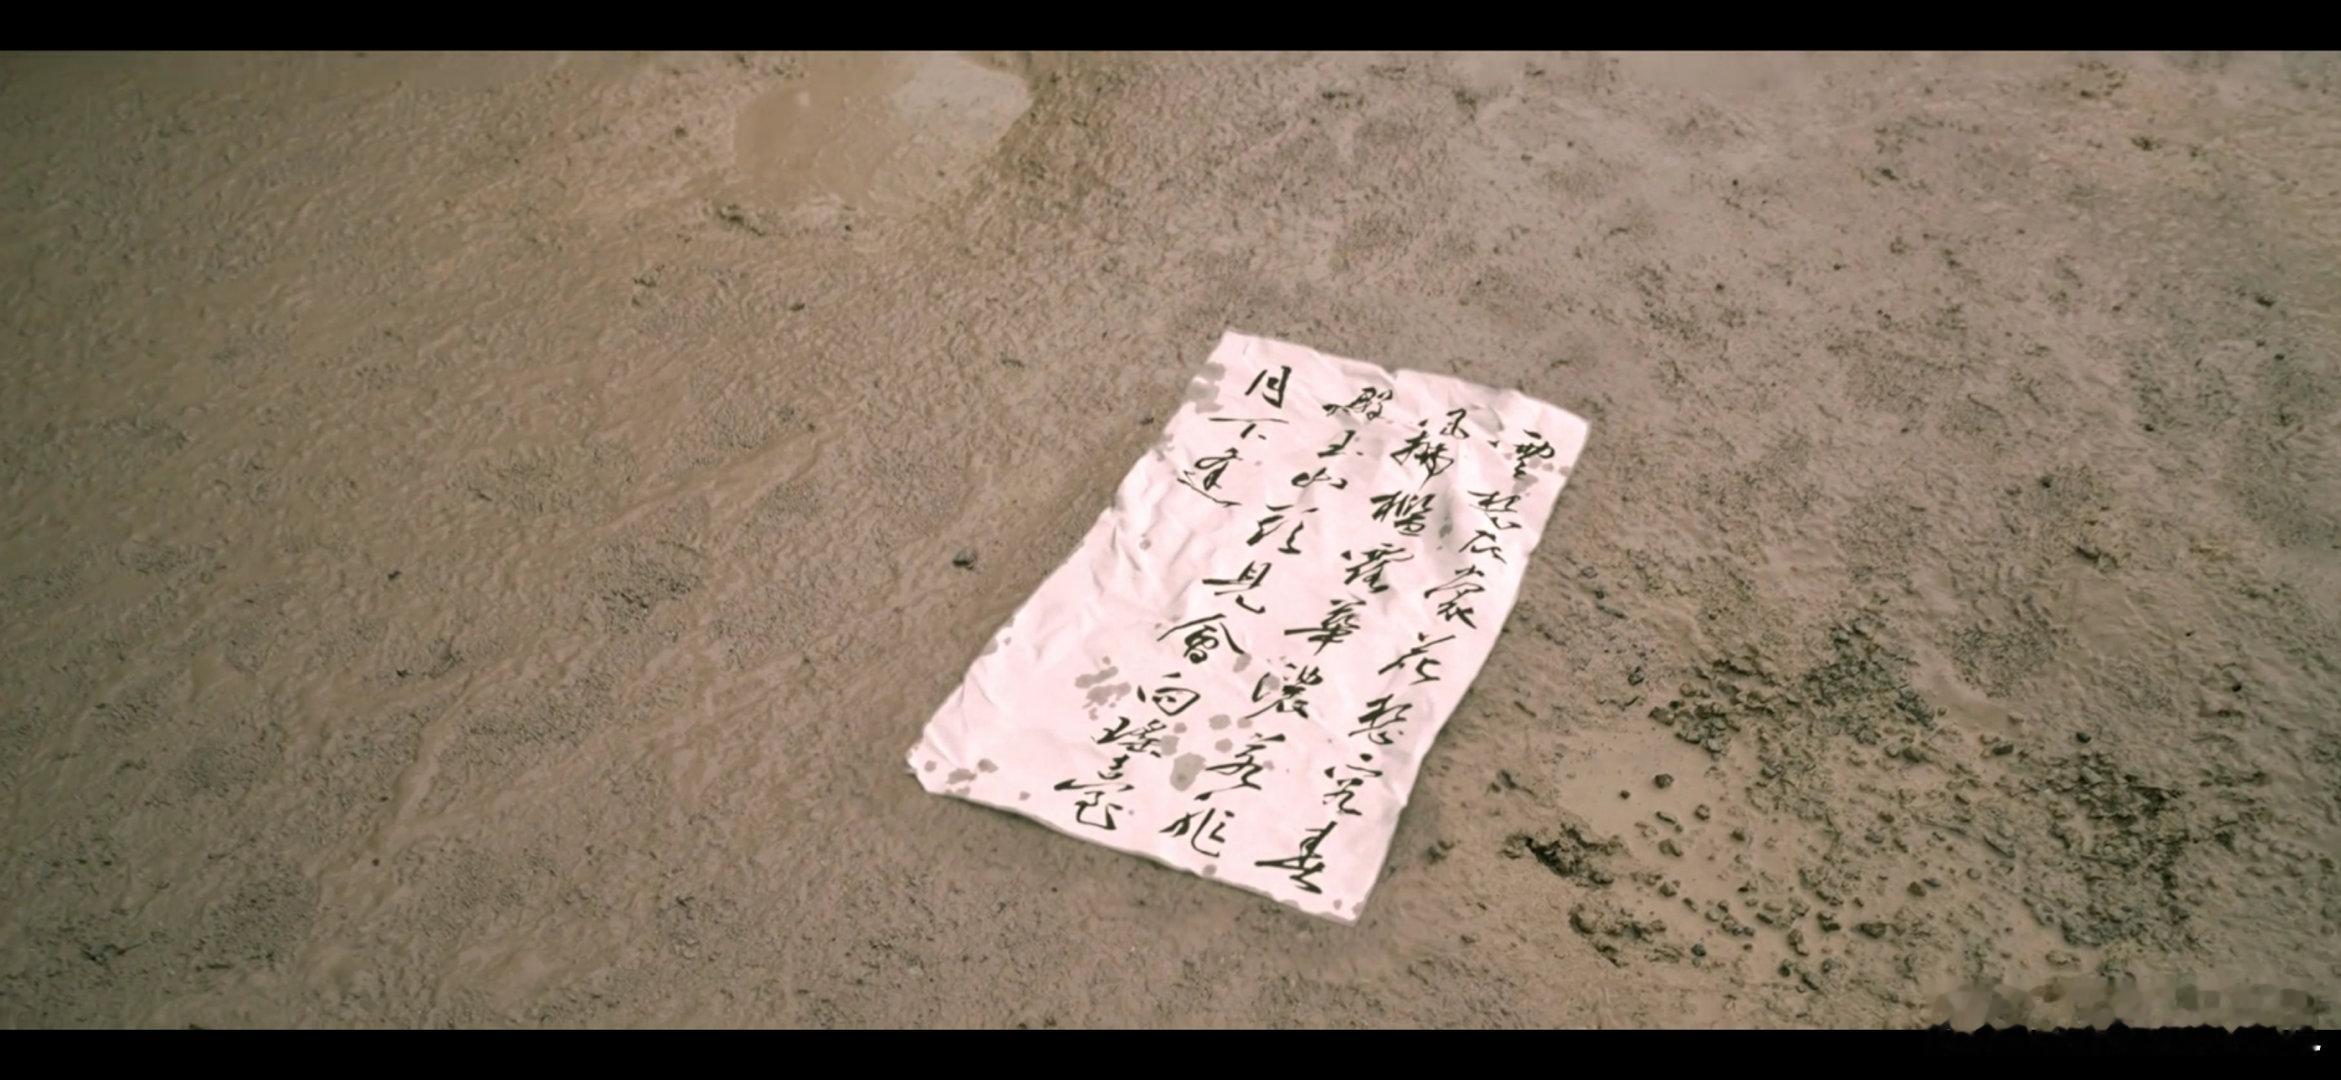 雲想衣裳花想容春
風拂檻露華濃若非
玉山頭見會向瑤臺
月下逢